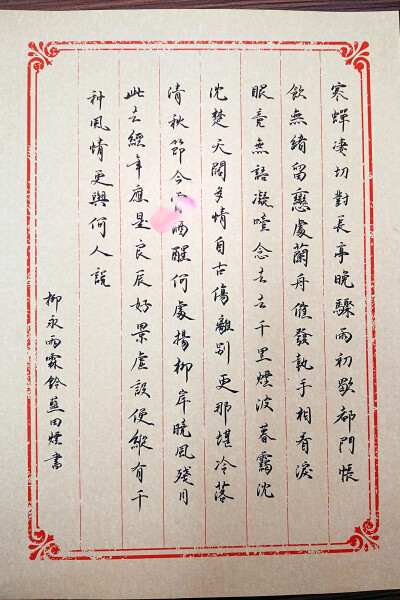 寒蟬凄切對長亭晚驟雨初歇都門帳
飲無緒留戀處蘭舟催發執手相看淚
眼竟無語凝噎念去去千里煙波暮靄沈
沈楚天闊多情自古傷離別更那堪冷落
清秋節今宵酒醒何處楊柳岸曉風殘月
此去經年應是良辰好景虛設便縱有千
种風情更與何人說
柳永雨霖鈴藍田煙書